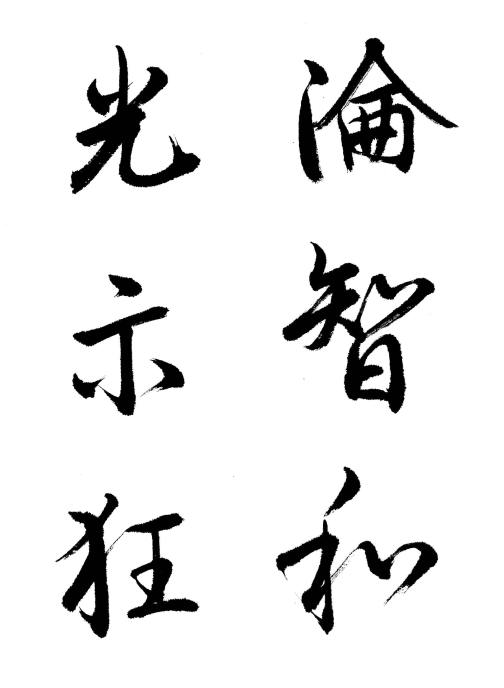 淪智和
光示狂